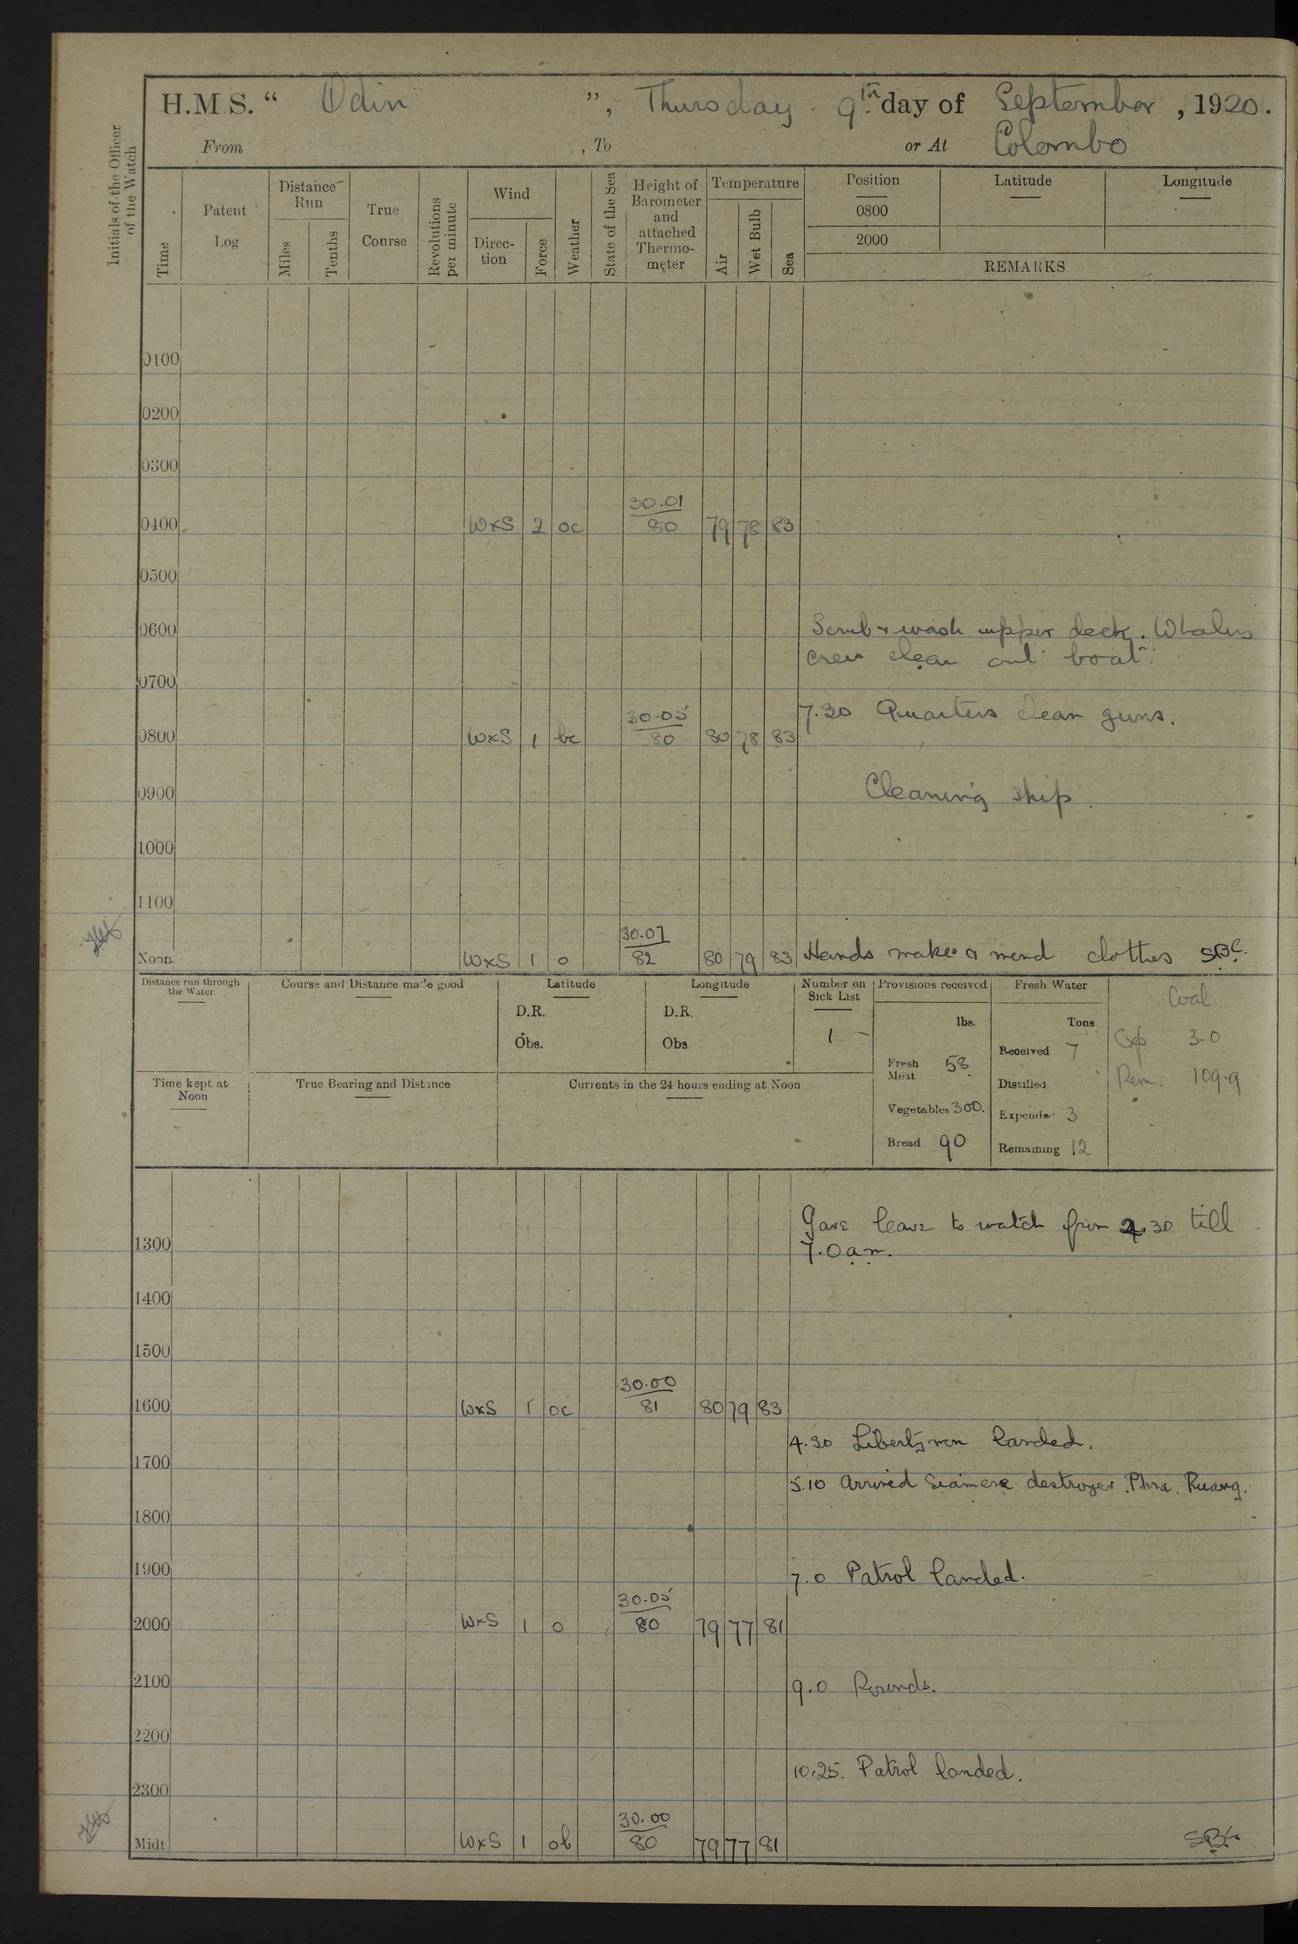 H.M.S. “ Odin ”, Thursday 9th day of September, 1920.
From , To or At Colombo
Initials of the Officer of the Watch
Time
Patent Log
Distance Run
Miles
Tenths
True Course
Revolutions per minute
Wind
Direc-tion
Force
Weather
State of the Sea
Height of Barometer and attached Thermo-meter
Temperature
Air
Wet Bulb
Sea
Position Latitude Longitude
0800
2000
REMARKS
0100
0200
0300
30.01
0400 WxS 2 oc 80 79 78 83
0500
0600 Scrub & wash upper deck. Whalers
crew clean out boat.
0700
7.30 Quarters clean guns.
30.05
0800 WxS 1 bc 80 80 78 83
0900 Cleaning ship.
1000
1100
30.07
Noon WxS 1 o 82 80 79 83 Hands make & mend clothes SBC.
Distance run through the Water
Course and Distance made good
Latitude
D.R.
Obs.
Longitude
D.R.
Obs
Number on Sick List
1
Provisions received
lbs.
Fresh Meat 58
Vegetables 300.
Bread 90
Fresh Water
Tons
Received 7
Distilled
Expended 3
Remaining 12
Coal
Exp 3.0
Rem. 109.9
Time kept at Noon
True Bearing and Distance
Currents in the 24 hours ending at Noon
Gave leave to watch from 4.30 till
1300 7.0 a.m.
1400
1500
30.00
1600 WxS 1 oc 81 80 79 83
4.30 Libertymen landed.
1700
5.10 Arrived Siamese destroyer Phra Ruang.
1800
1900
7.0 Patrol landed.
30.05
2000 WxS 1 o 80 79 77 81
2100
9.0 Rounds.
2200
10.25. Patrol landed.
2300
30.00
Midt WxS 1 ob 80 79 77 81 SBC